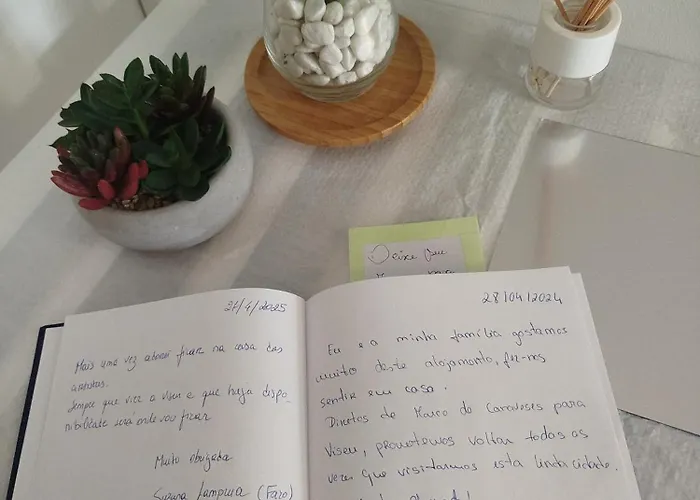 Deixe seu
27/4/2025
Mais uma vez adorei ficar na casa das
artistas.
Sempre que vier a Viseu e que haja dispo-
nibilidade será onde vou ficar
Muito obrigada
(Faro)
28/04/2024
Eu e a minha família gostamos
muito deste alojamento, fez-nos
sentir em casa.
Diretos de Marco de Canaveses para
Viseu, prometemos voltar todas as
vezes que visitarmos esta linda cidade.